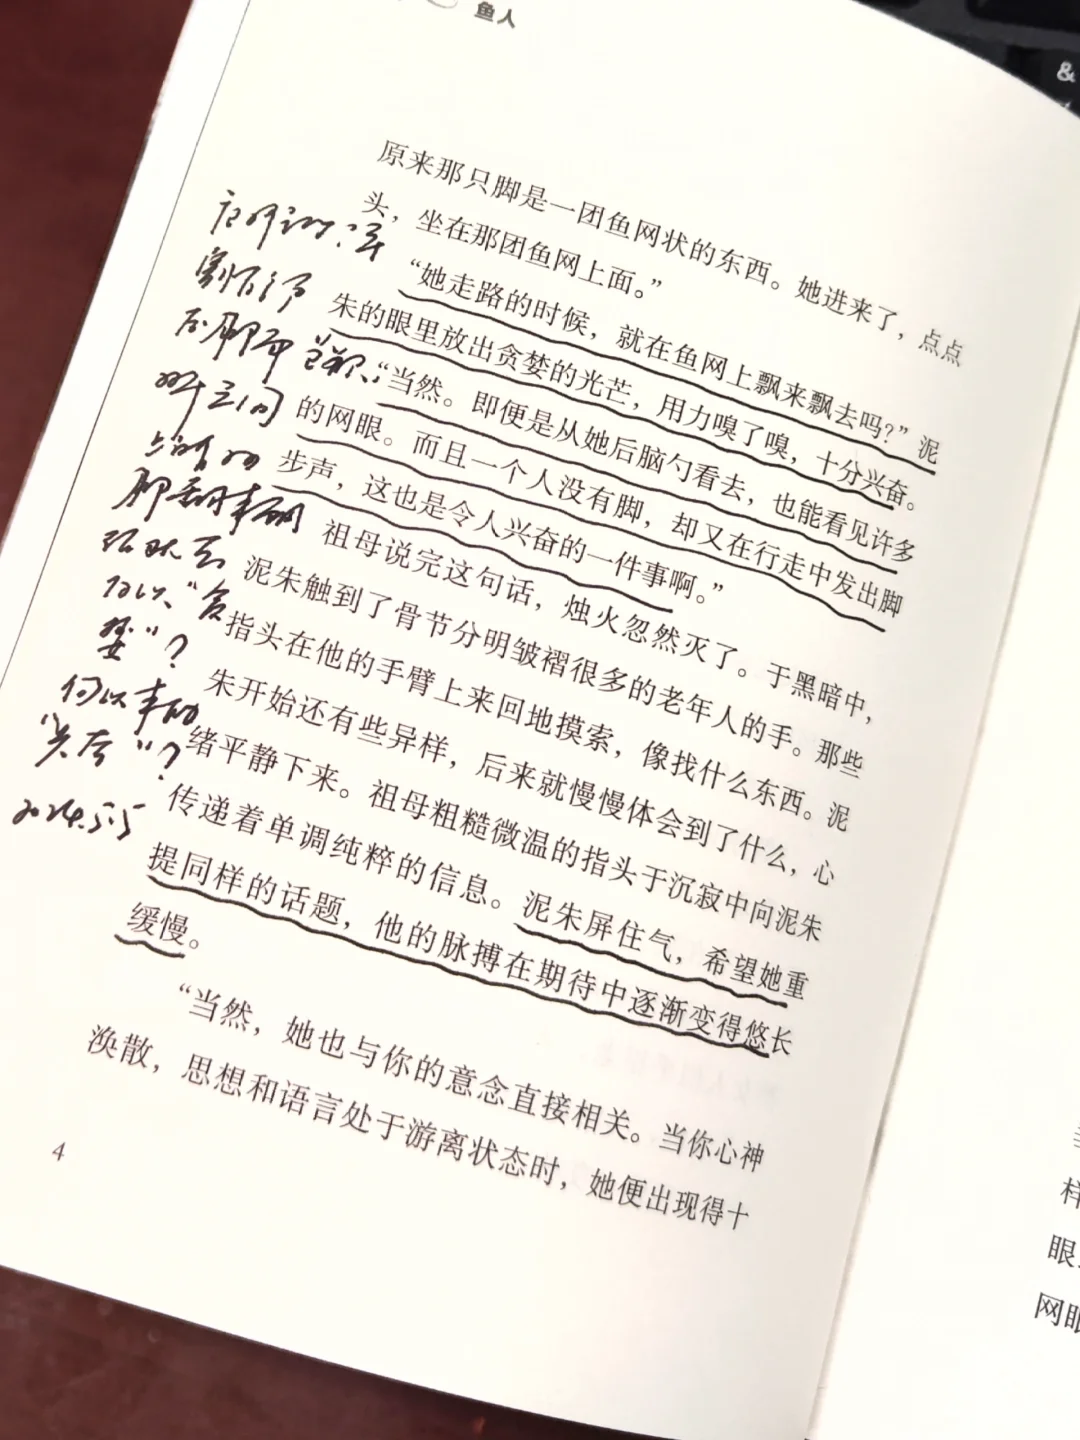 鱼人
原来那只脚是一团鱼网状的东西。她进来了，点点
头，坐在那团鱼网上面。”
“她走路的时候，就在鱼网上飘来飘去吗?”泥
朱的眼里放出贪婪的光芒，用力嗅了嗅，十分兴奋。
“当然。即便是从她后脑勺看去，也能看见许多
的网眼。而且一个人没有脚，却又在行走中发出脚
步声，这也是令人兴奋的一件事啊。”
祖母说完这句话，烛火忽然灭了。于黑暗中，
泥朱触到了骨节分明皱褶很多的老年人的手。那些
指头在他的手臂上来回地摸索，像找什么东西。泥
朱开始还有些异样，后来就慢慢体会到了什么，心
绪平静下来。祖母粗糙微温的指头于沉寂中向泥朱
传递着单调纯粹的信息。泥朱屏住气，希望她重
提同样的话题，他的脉搏在期待中逐渐变得悠长
缓慢。
“当然，她也与你的意念直接相关。当你心神
涣散，思想和语言处于游离状态时，她便出现得十
4
何以“贪
婪”？
何以
”？
2024.5.5
&
样
眼
网眼